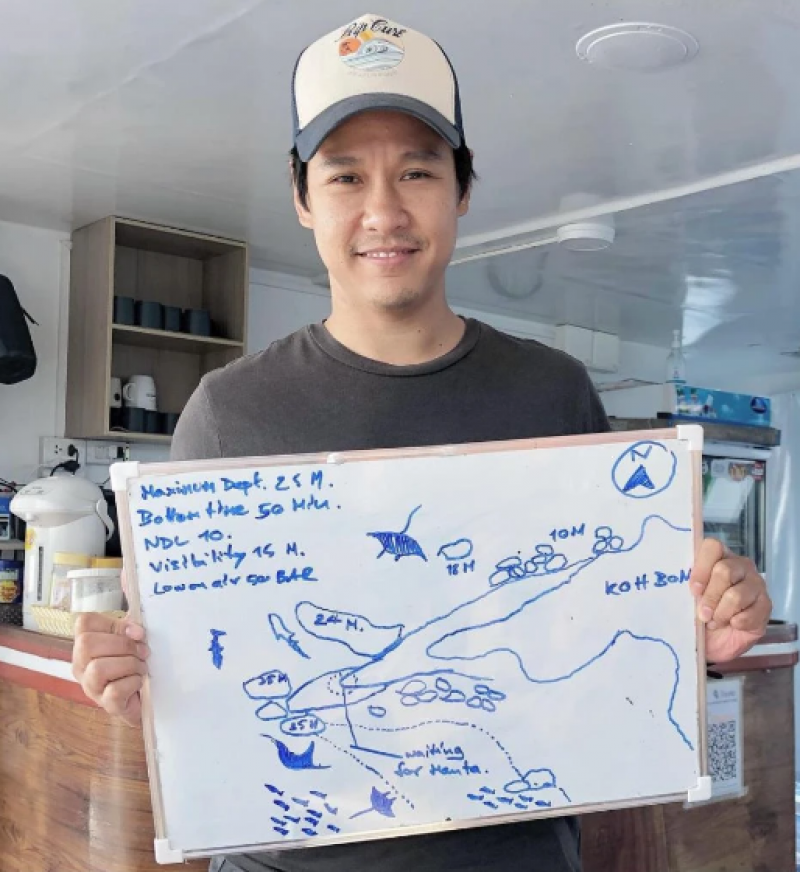 Rip Curl
Maximum Dept. 25 M.
Bottom time 50 Min.
NDL 10.
Visibility 15 M.
Low on air 50 BAR
N
10M
18M
KOH BON
24 M.
25M
waiting
for Manta.